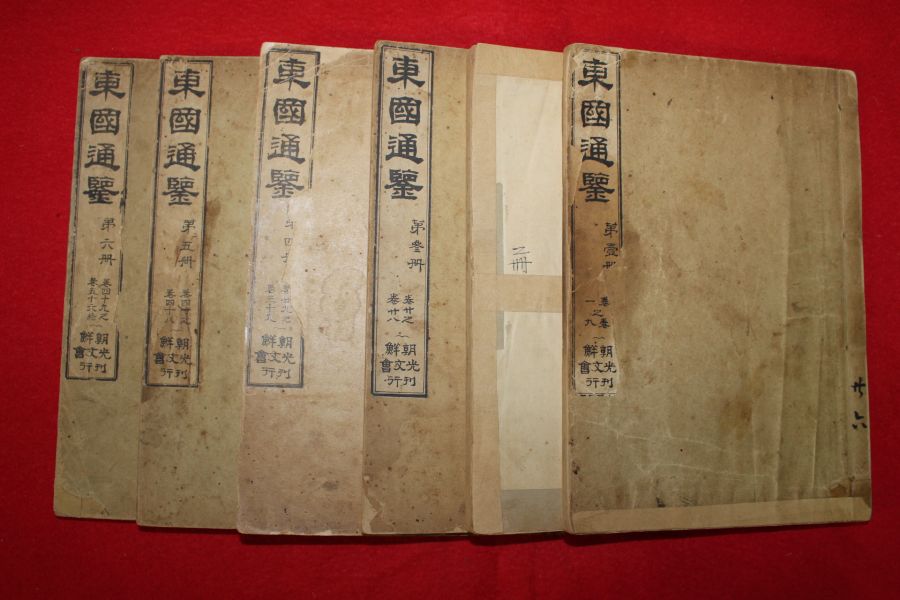 東國通鑒
第壹冊
朝鮮
光文會
刊行
廿六
二冊
東國通鑒
第叄冊
卷廿之
卷廿八
朝鮮
光文會
刊行
東國通鑒
卷廿九之
卷三十九
朝鮮
光文會
刊行
東國通鑒
第五冊
卷四十之
卷四十八
朝鮮
光文會
刊行
東國通鑒
第六冊
卷四十九之
卷五十六終
朝鮮
光文會
刊行